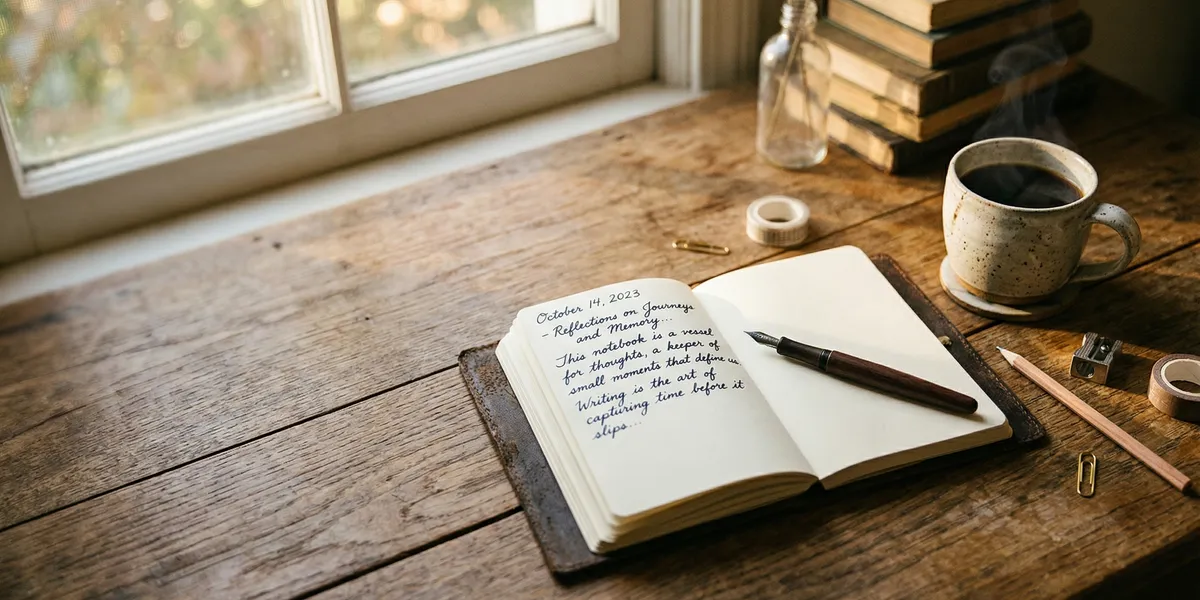 October 14, 2023
- Reflections on Journeys
and Memory...
This notebook is a vessel
for thoughts, a keeper of
small moments that define us.
Writing is the art of
capturing time before it
slips...